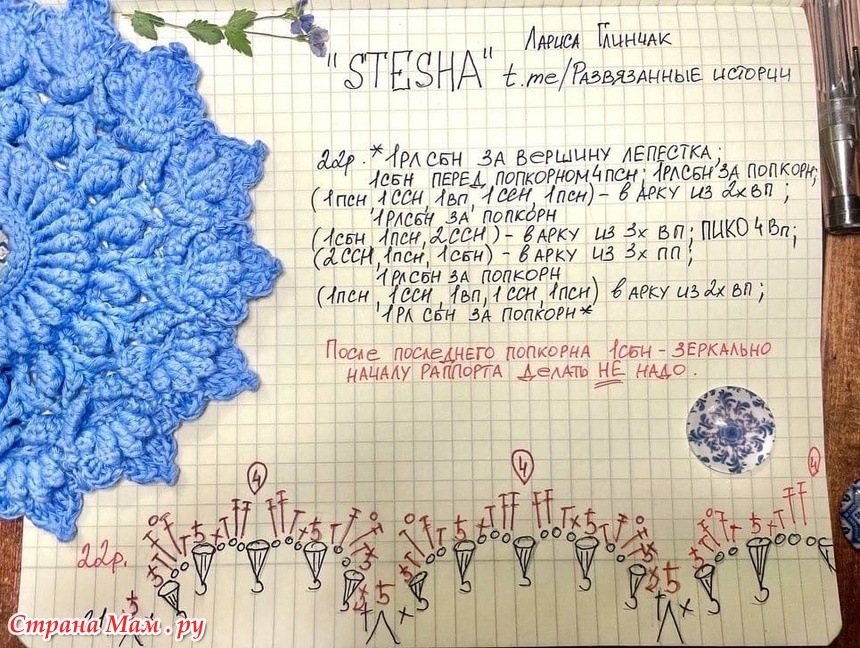 Лариса Глинчак
"STESHA" t.me/Развязанные истории
22р. *1РЛСБН ЗА ВЕРШИНУ ЛЕПЕСТКА;
1СБН ПЕРЕД ПОПКОРНОМ 4ПСН; 1РЛСБН ЗА ПОПКОРН;
(1ПСН, 1ССН, 1ВП, 1ССН, 1ПСН) – В АРКУ ИЗ 2Х ВП;
1РЛСБН ЗА ПОПКОРН
(1СБН, 1ПСН, 2ССН) – В АРКУ ИЗ 3Х ВП; ПИКО 4ВП;
(2ССН, 1ПСН, 1СБН) – В АРКУ ИЗ 3Х ПП;
1РЛСБН ЗА ПОПКОРН
(1ПСН, 1ССН, 1ВП, 1ССН, 1ПСН) В АРКУ ИЗ 2Х ВП;
1РЛ СБН ЗА ПОПКОРН*
После последнего попкорна 1СБН – ЗЕРКАЛЬНО
НАЧАЛУ РАППОРТА ДЕЛАТЬ НЕ НАДО.
4 4 4
22р.
21
Страна Мам .ру